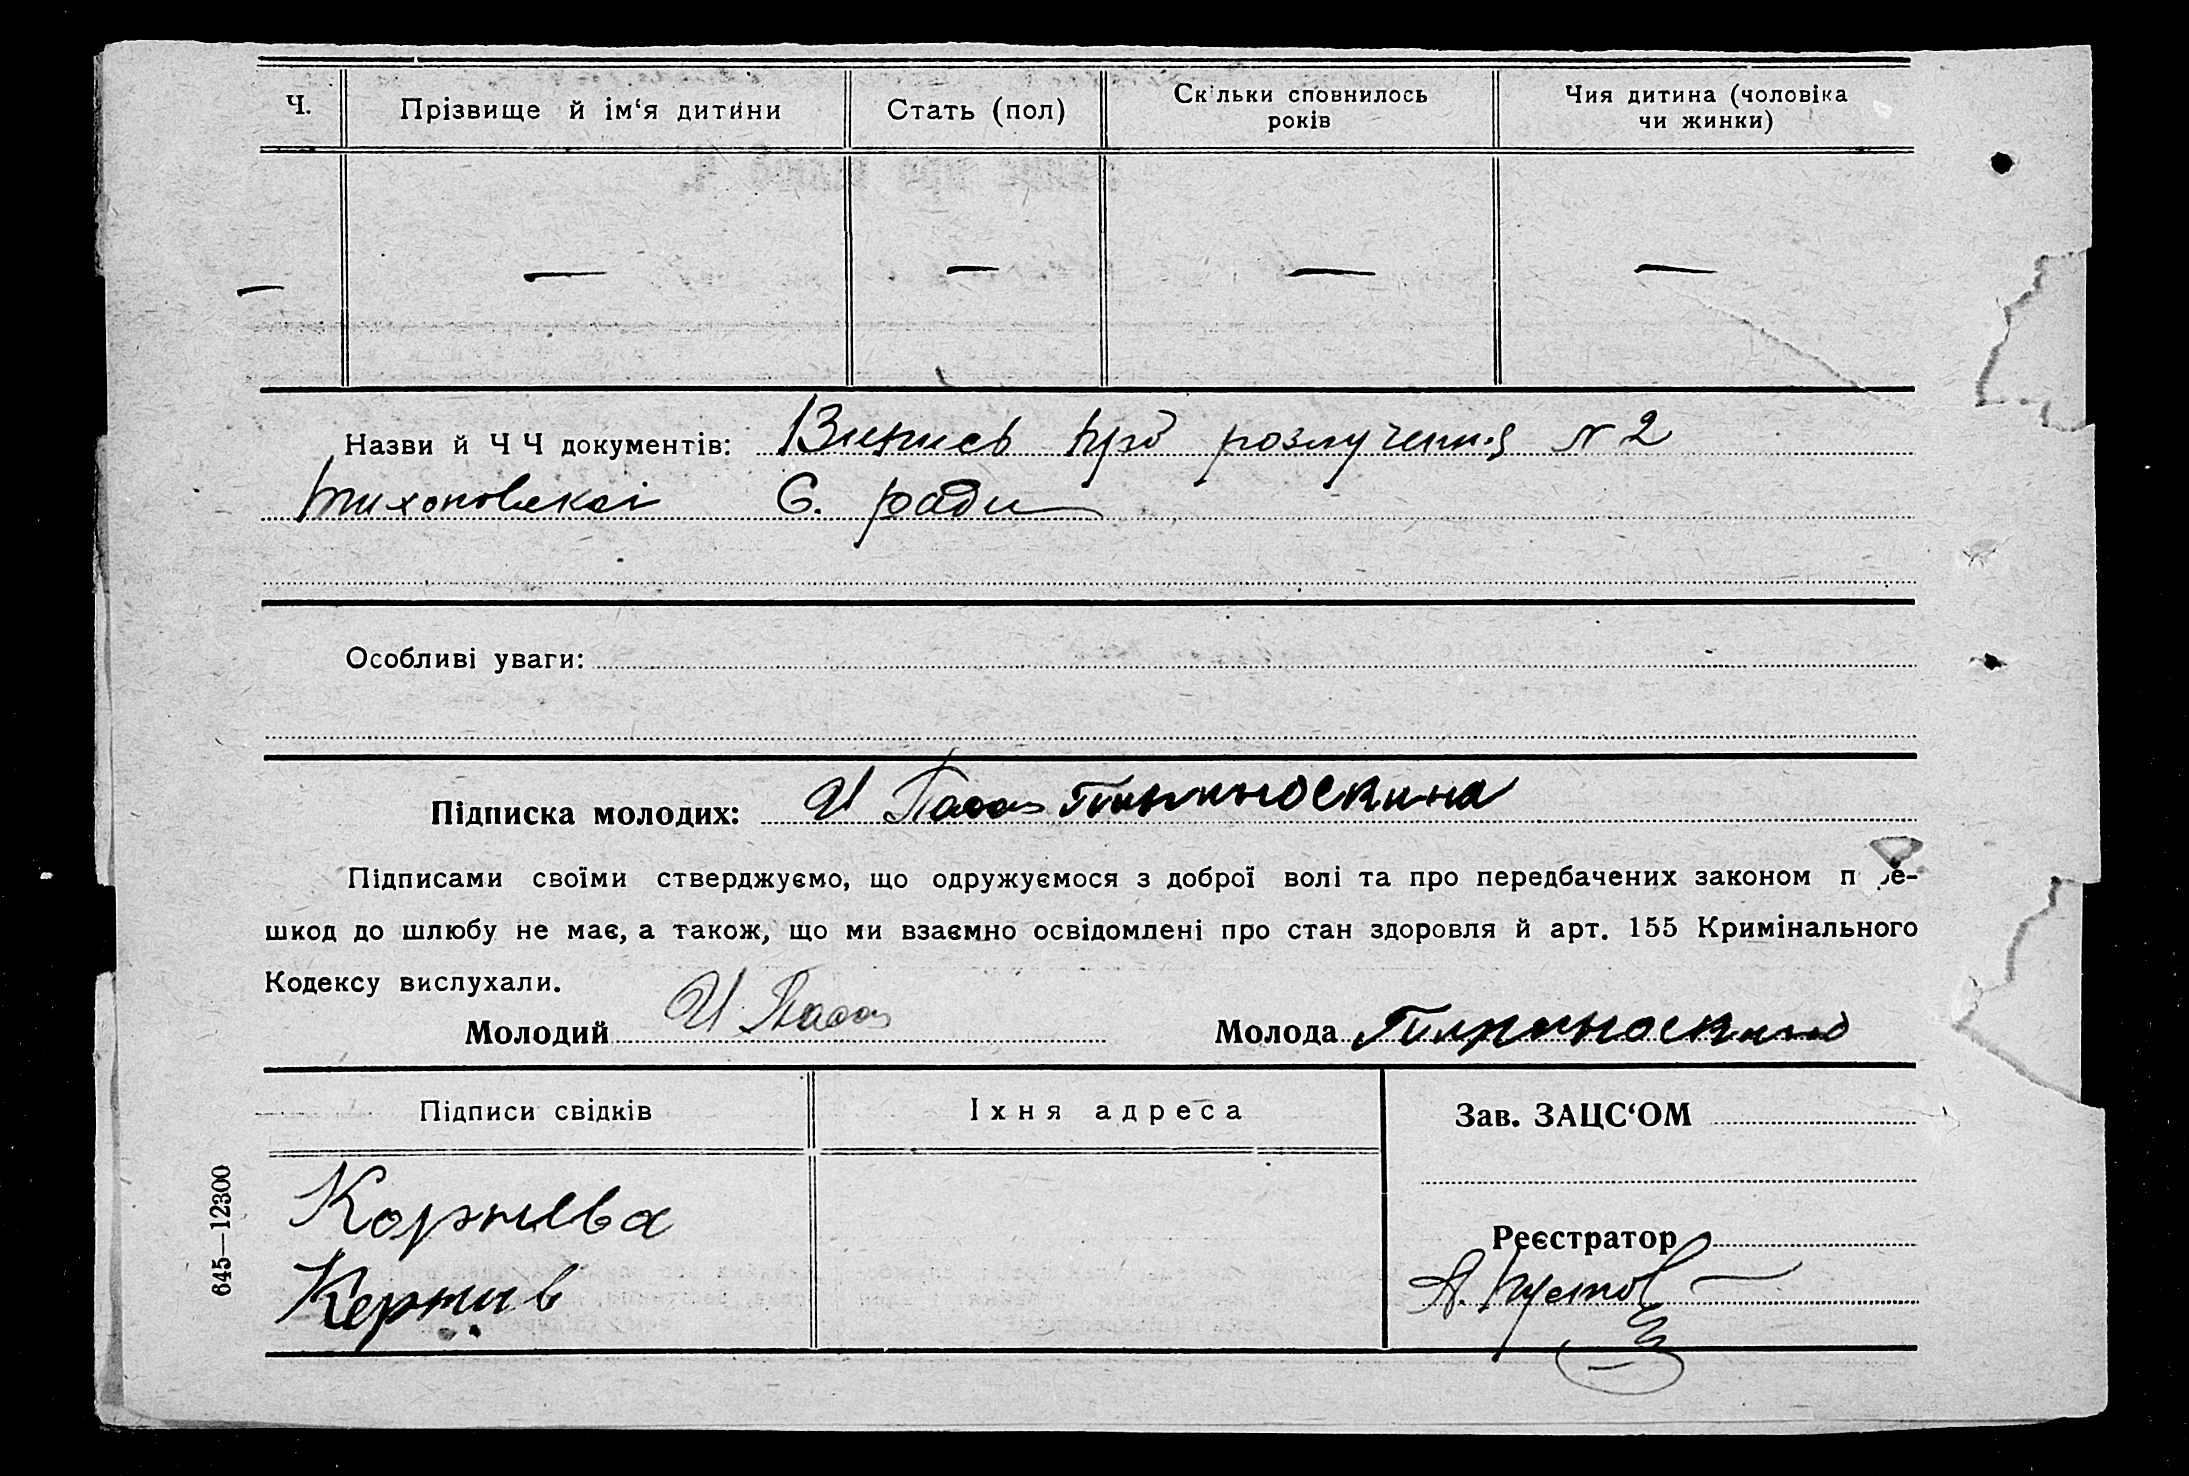 Ч.
Прізвище й ім‘я дитини
Стать (пол)
Скільки сповнилось
років
Чия дитина (чоловіка
чи жинки)
— — — — —
Назви й Ч Ч документів: Випись про розлучення № 2
Тихоновскої С. ради
Особливі уваги:
Підписка молодих: И
Підписами своїми стверджуємо, що одружуємося з доброї волі та про передбачених законом пере-
шкод до шлюбу не має, а також, що ми взаємно освідомлені про стан здоровля й арт. 155 Кримінального
Кодексу вислухали.
Молодий И
Молода
Підписи свідків
Їхня адреса
Зав. ЗАЦС‘ОМ
Корнева
Реєстратор
А. Кустов
645—12300